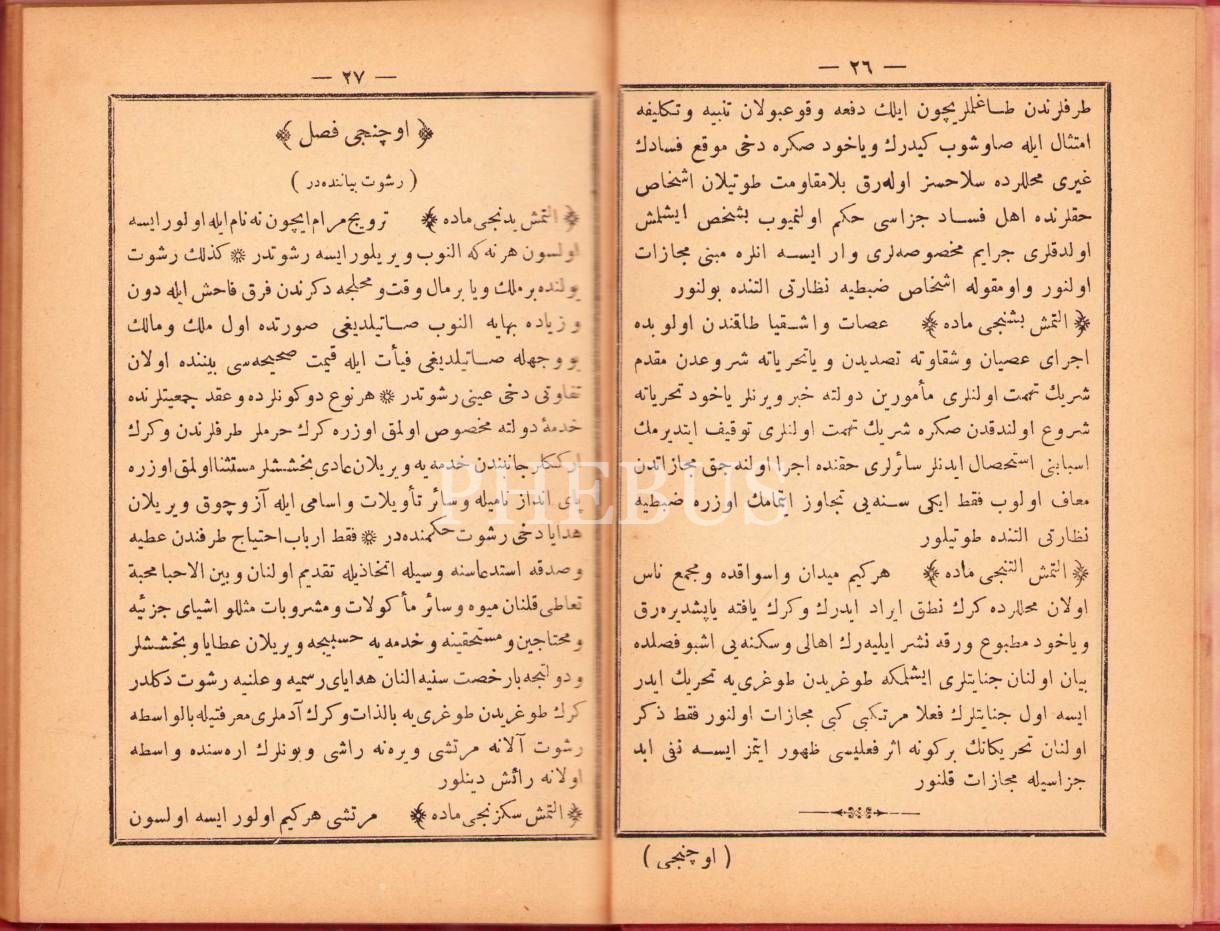 — ٢٦ —
طرفلرندن طاغلملریچون ایلك دفعه وقوعبولان تنبیه وتكلیفه
امتثال ایله صاوشوب كیدرك ویاخود صكره دخی موقع فسادك
غیری محللرده سلاحسز اوله‌رق بلامقاومت طوتیلان اشخاص
حقلرنده اهل فساد جزاسی حكم اولنمیوب بشخص ایشلمش
اولدقلری جرایم مخصوصه‌لری وار ایسه انلره مبنی مجازات
اولنور واومقوله اشخاص ضبطیه نظارتی التنده بولنور
﴿ التمش بشنجی ماده ﴾ عصات واشقیا طاقندن اولوبده
اجرای عصیان وشقاوته تصدیدن و یاتحریاته شروعدن مقدم
شریك تهمت اولنلری مأمورین دولته خبر ویرنلر یاخود تحریاته
شروع اولندقدن صكره شریك تهمت اولنلری توقیف ایتدیرمك
اسبابنی استحصال ایدنلر سائرلری حقنده اجرا اولنه‌جق مجازاتدن
معاف اولوب فقط ایكی سنه‌یی تجاوز ایتمامك اوزره ضبطیه
نظارتی التنده طوتیلور
﴿ التمش التنجی ماده ﴾ هركیم میدان واسواقده ومجمع ناس
اولان محللرده كرك نطق ایراد ایدرك وكرك یافته یاپشدیره‌رق
ویاخود مطبوع ورقه نشر ایلیه‌رك اهالی وسكنه‌یی اشبوفصلده
بیان اولنان جنایتلری ایشلمكه طوغریدن طوغری‌یه تحریك ایدر
ایسه اول جنایتلرك فعلا مرتكبی كبی مجازات اولنور فقط ذكر
اولنان تحریكاتك بركونه اثر فعلیسی ظهور ایتمز ایسه نفی ابد
جزاسیله مجازات قلنور
( اوچنجی )
— ٢٧ —
﴿ اوچنجی فصل ﴾
( رشوت بیاننده‌در )
﴿ التمش یدنجی ماده ﴾ ترویج مرام ایچون نه نام ایله اولور ایسه
اولسون هرنه كه النوب ویریلور ایسه رشوتدر ۞ كذلك رشوت
یولنده برملك ویا برمال وقت ومحلنجه دكرندن فرق فاحش ایله دون
وزیاده بهایه النوب صاتیلدیغی صورتده اول ملك ومالك
بووجهله صاتیلدیغی فیأت ایله قیمت صحیحه‌سی بیننده اولان
تفاوتی دخی عینی رشوتدر ۞ هرنوع دوكونلرده وعقد جمعیتلرنده
خدمهٔ دولته مخصوص اولمق اوزره كرك حرملر طرفلرندن وكرك
ارككلر جانبندن خدمه‌یه ویریلان عادی بخششلر مستثنا اولمق اوزره
پای انداز نامیله وسائر تأویلات واسامی ایله آز وچوق ویریلان
هدایا دخی رشوت حكمنده‌در ۞ فقط ارباب احتیاج طرفندن عطیه
وصدقه استدعاسنه وسیله اتخاذیله تقدیم اولنان وبین الاحبا محبة
تعاطی قلنان میوه وسائر مأكولات ومشروبات مثللو اشیای جزئیه
ومحتاجین ومستحقینه وخدمه‌یه حسبیجه ویریلان عطایا وبخششلر
ودولتجه بارخصت سنیه النان هدایای رسمیه وعلنیه رشوت دكلدر
كرك طوغریدن طوغری‌یه بالذات وكرك آدملری معرفتیله بالواسطه
رشوت آلانه مرتشی ویره‌نه راشی وبونلرك اره‌سنده واسطه
اولانه رائش دینلور
﴿ التمش سكزنجی ماده ﴾ مرتشی هركیم اولور ایسه اولسون
PHEBUS